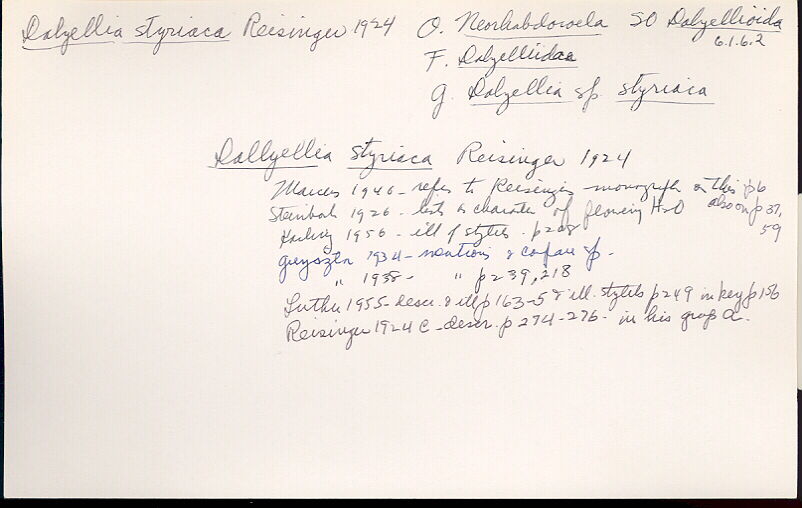 Dalyellia styriaca Reisinger 1924
O. Neorhabdocoela SO Dalyellioida
6.1.6.2
F. Dalyelliidae
G. Dalyellia sp. styriaca
Dallyellia styriaca Reisinger 1924
Marcus 1946 - refers to Reisingers monograph on this p6
also on p 37, 59
Steinbok 1926 - lists as character of flowing H2O
1956 - ill of stylets - p208
Gieysztor 1934 - mentions & compare sp.
" 1938 - " p 239, 218
Luther 1955 - descr. & ill p 163-5 & ill. stylets p 249 in key p 156
Reisinger 1924 C - descr. p 274-276 - in his group a.